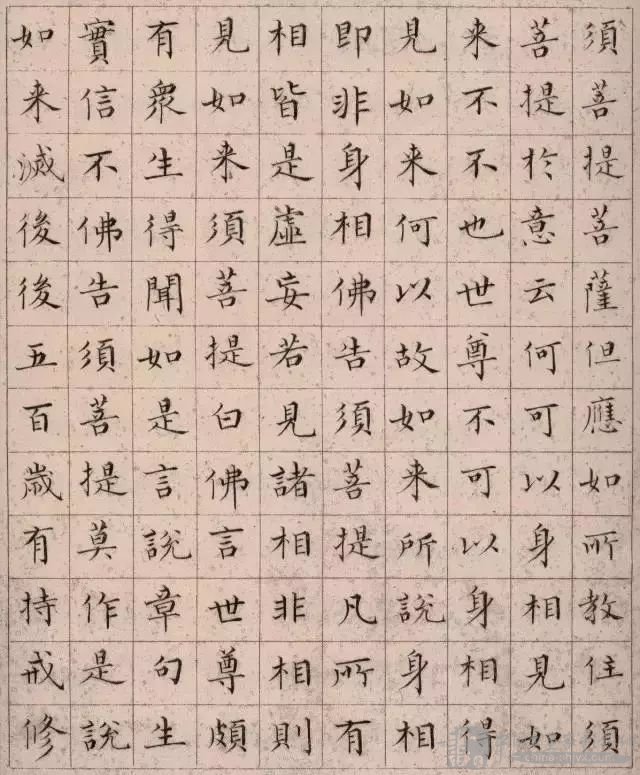 須菩提菩薩但應如所教住須
菩提於意云何可以身相見如
來不不也世尊不可以身相得
見如来何以故如来所說身相
即非身相佛告須菩提凡所有
相皆是虛妄若見諸相非相則
見如来須菩提白佛言世尊頗
有衆生得聞如是言說章句生
實信不佛告須菩提莫作是說
如来滅後後五百歲有持戒修